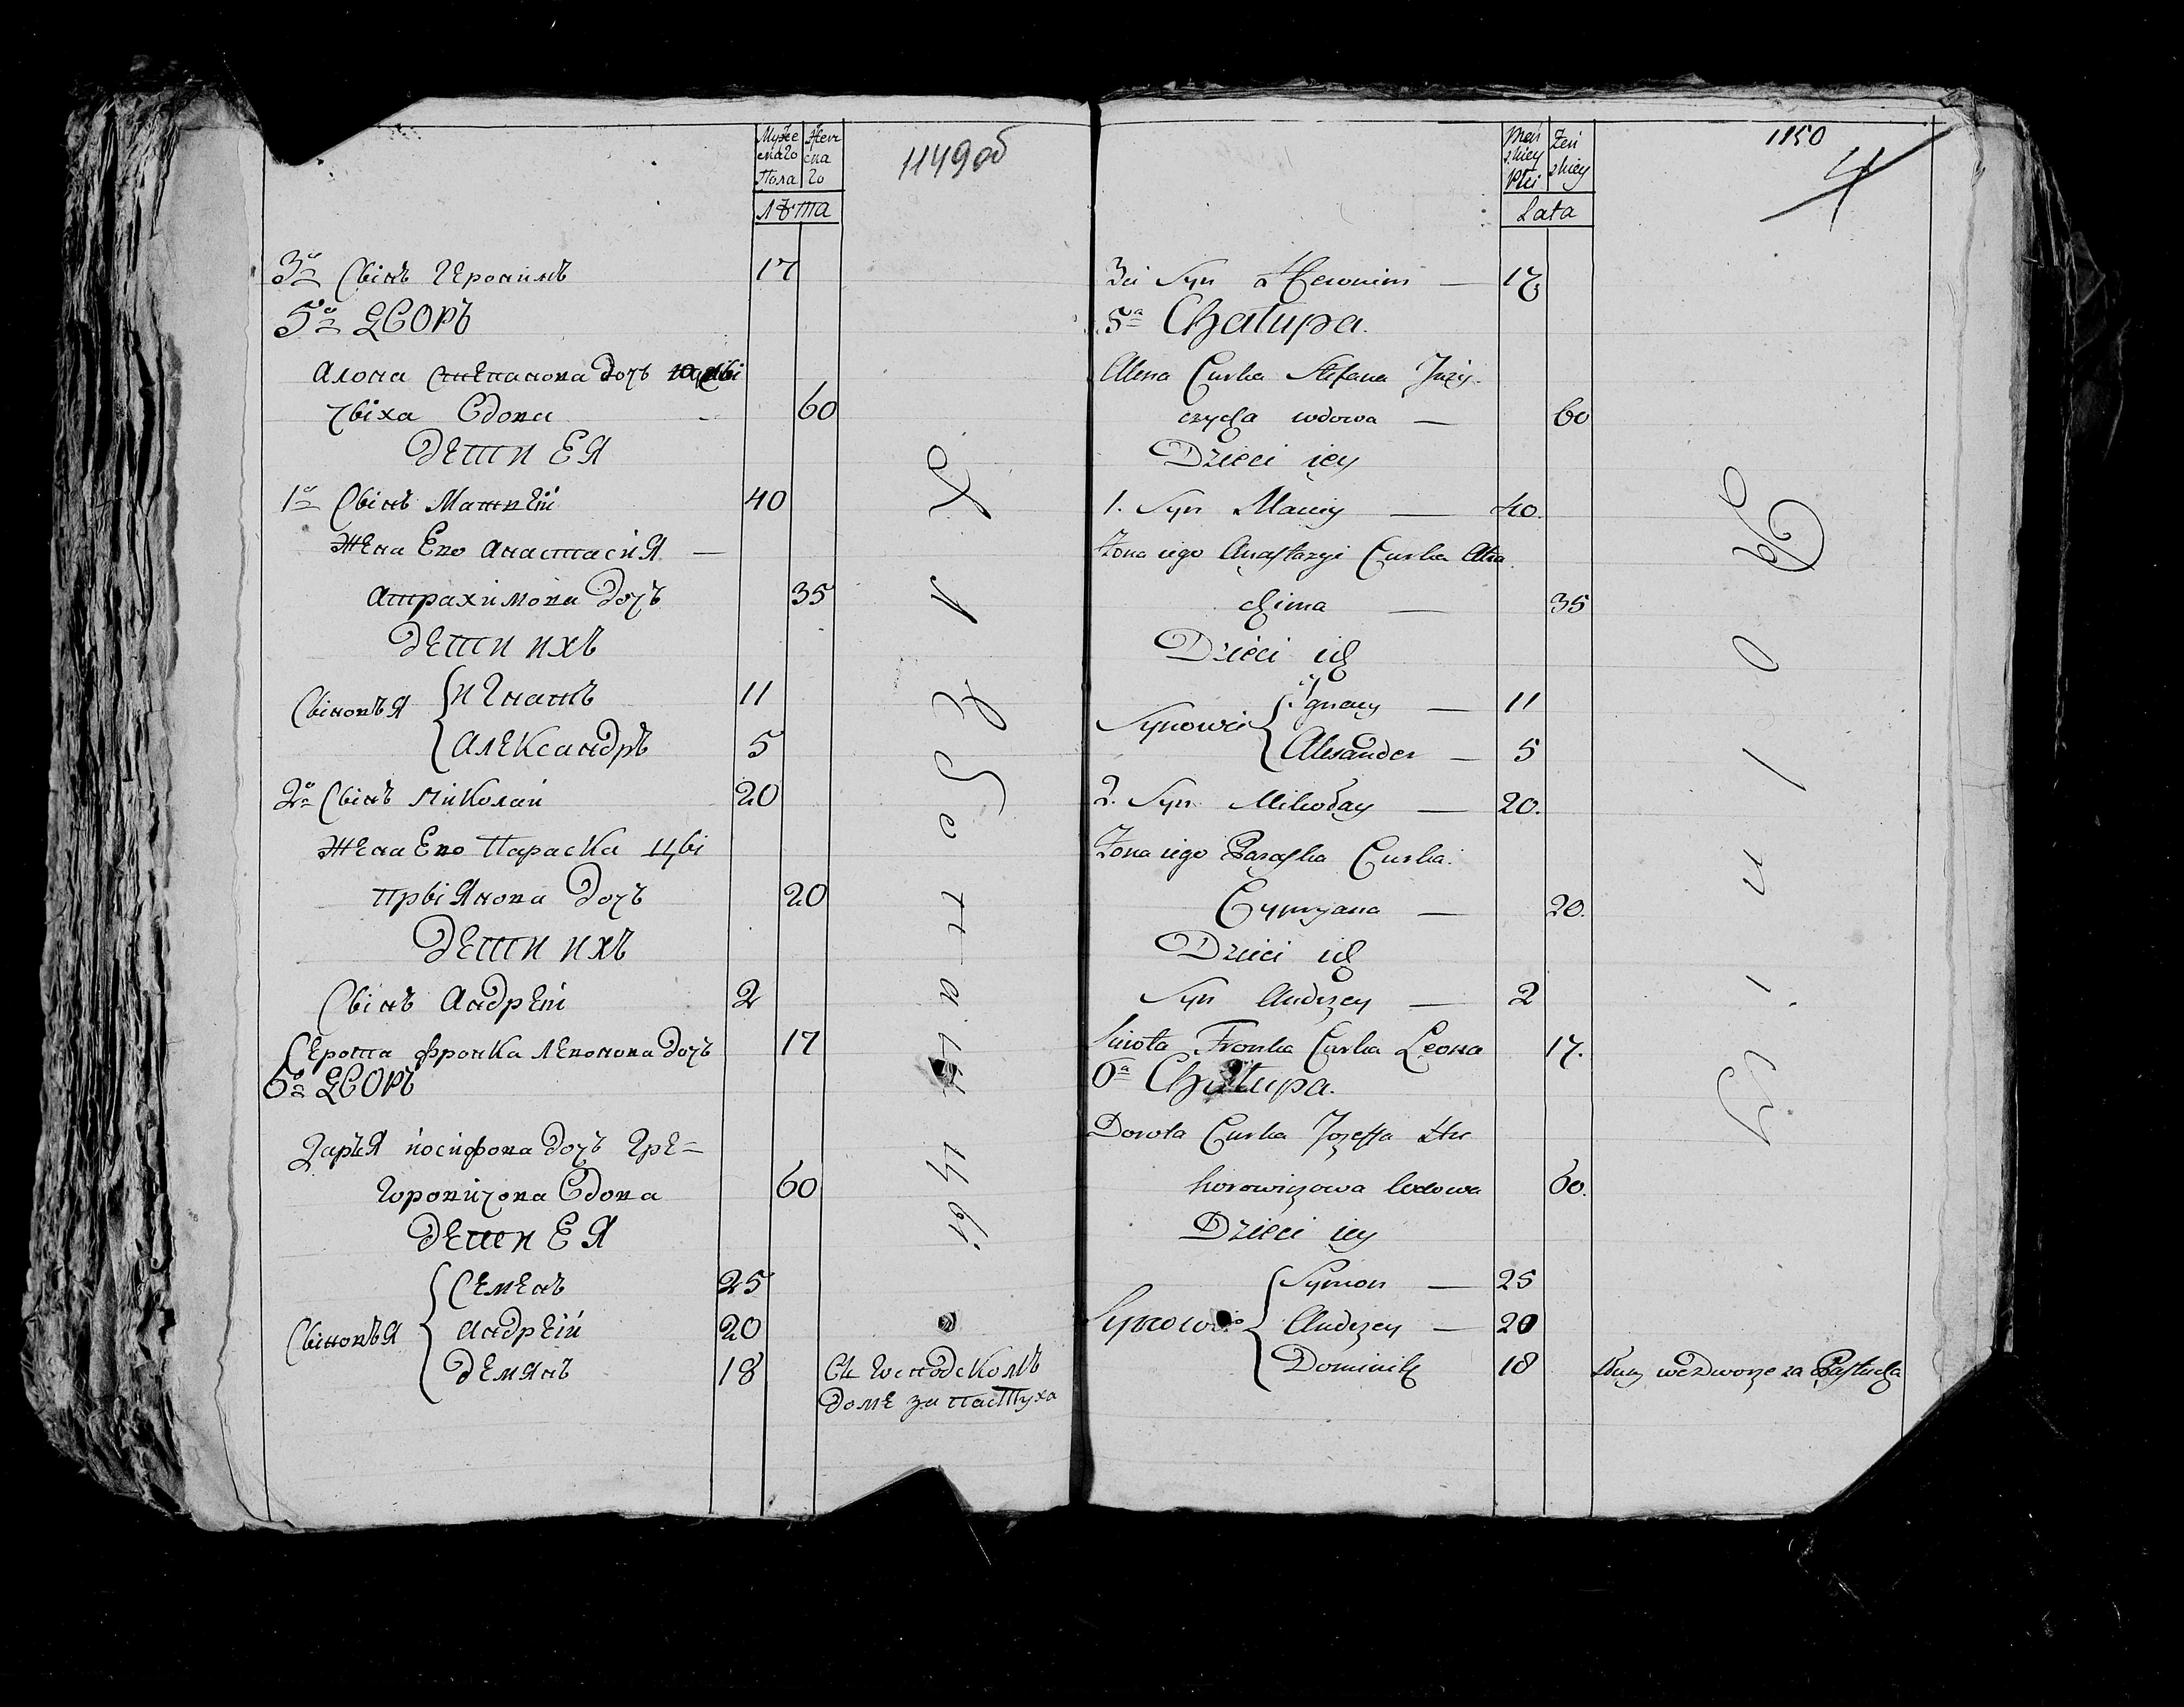 Муже Жен
скаго ска
Пола го
Лѣта
1149об
3й Сынъ Героnимъ 17
5й Дворъ
Алона Степанова дочь
чыха Вдова - 60
Дети Ея
1й Сынъ Матвей 40
Жена Ево Анастасия —
Атрахимова Дочь 35
Дети ихъ
Сыновья Игнатъ 11
Александръ 5
2й Сынъ Миколай 20
Жена Ево Параска Цы
прыянова Дочь 20
Дети ихъ
Сынъ Андрей 2
Серота Фронка Левонова дочь 17
6й Дворъ
Дарья Иосифова дочь Гре-
горовичова Вдова 60
Дети Ея
Сыновья Семенъ 25
Андрей 20
Демянъ 18
Въ Господскомъ
доме за пастуха
Męs Żeń
skiey skiey
Płci
Lata
1150
4
3ci Syn Heronim — 17
5a Chałupa.
Alena Curka Stefana Juzy-
czycha wdowa — 60
Dzieci iey
1. Syn Maciey — 40.
Żona iego Anastazyi Curka Atra
chima — 35
Dzieci ich
Synowie Ignacy — 11
Alexander — 5
2. Syn Mikołay — 20.
Żona iego Paraska Curka
Cypryana — 20.
Dzieci ich
Syn Andrzey — 2
Sirota Fronka Curka Leona 17.
6a Chałupa.
Dorota Curka Jozeffa Hre
horowiczowa wdowa 60.
Dzieci iey
Synowie Symon — 25
Andrzey — 20
Dominik 18
Służy we Dworze za Pastucha